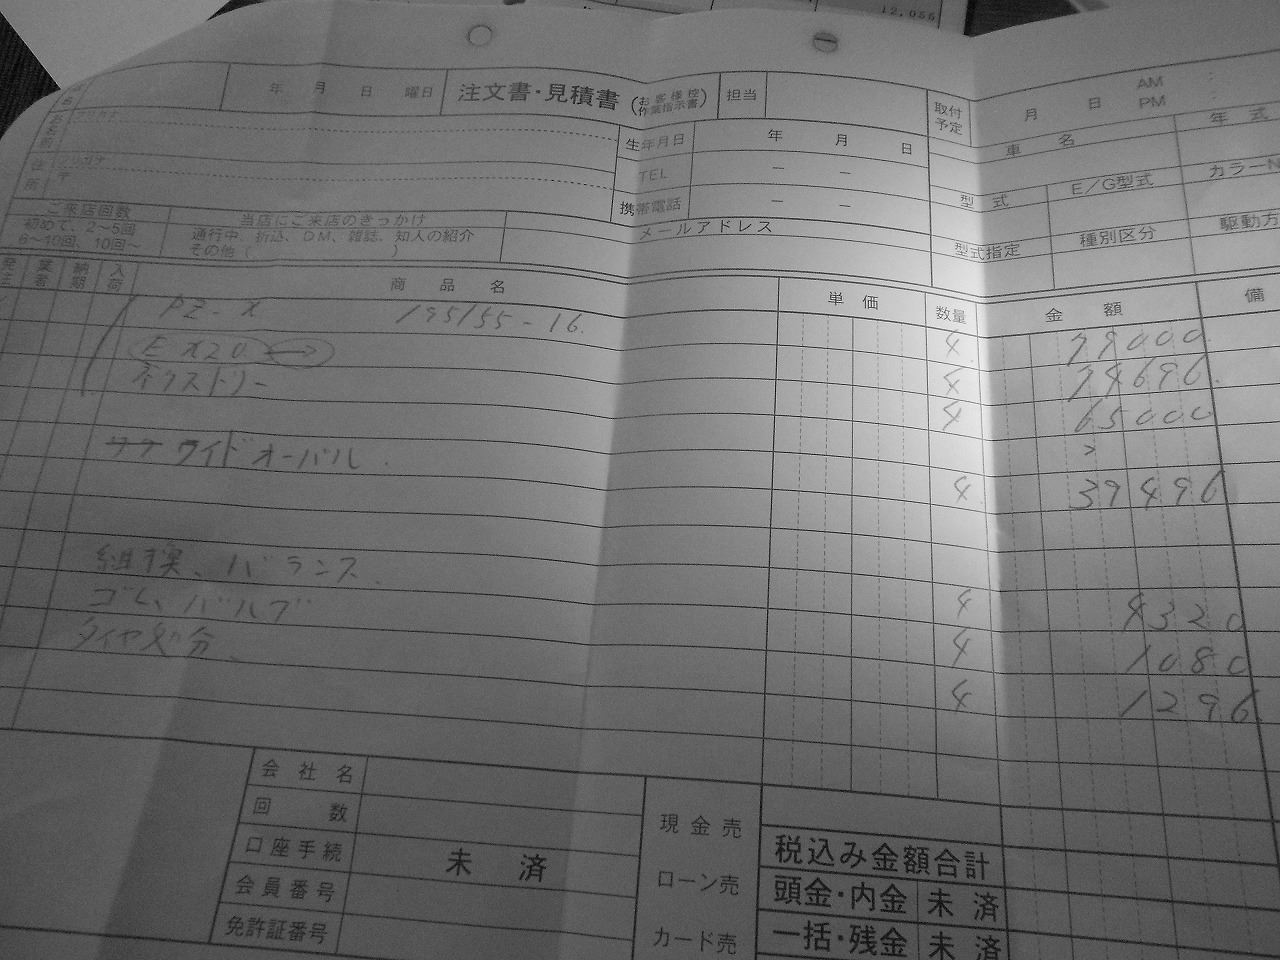 12,056
年 月 日 曜日 注文書・見積書 (お客様控 作業指示書) 担当
取付予定 月 日 AM PM
フリガナ
お名前
生年月日 年 月 日
車名 年式
TEL － －
フリガナ
住所 〒
携帯電話 － －
型式 E/G型式 カラーN
メールアドレス
型式指定 種別区分 駆動方
ご来店回数 当店にご来店のきっかけ
初めて、2～5回 通行中、折込、DM、雑誌、知人の紹介
6～10回、10回～ その他（
発注 業者 納期 入荷 商品名 単価 数量 金額 備
PZ-X 195/55-16. 4 79000
EX20 4 74696.
ネクストリー 4 65000
ワイドオーバル. 4 39496
組換、バランス. 4 4320
ゴム、バルブ 4 1080
タイヤ処分. 4 1296.
会社名
回数 現金売
口座手続 未済 税込み金額合計
会員番号 ローン売 頭金・内金 未済
免許証番号 カード売 一括・残金 未済